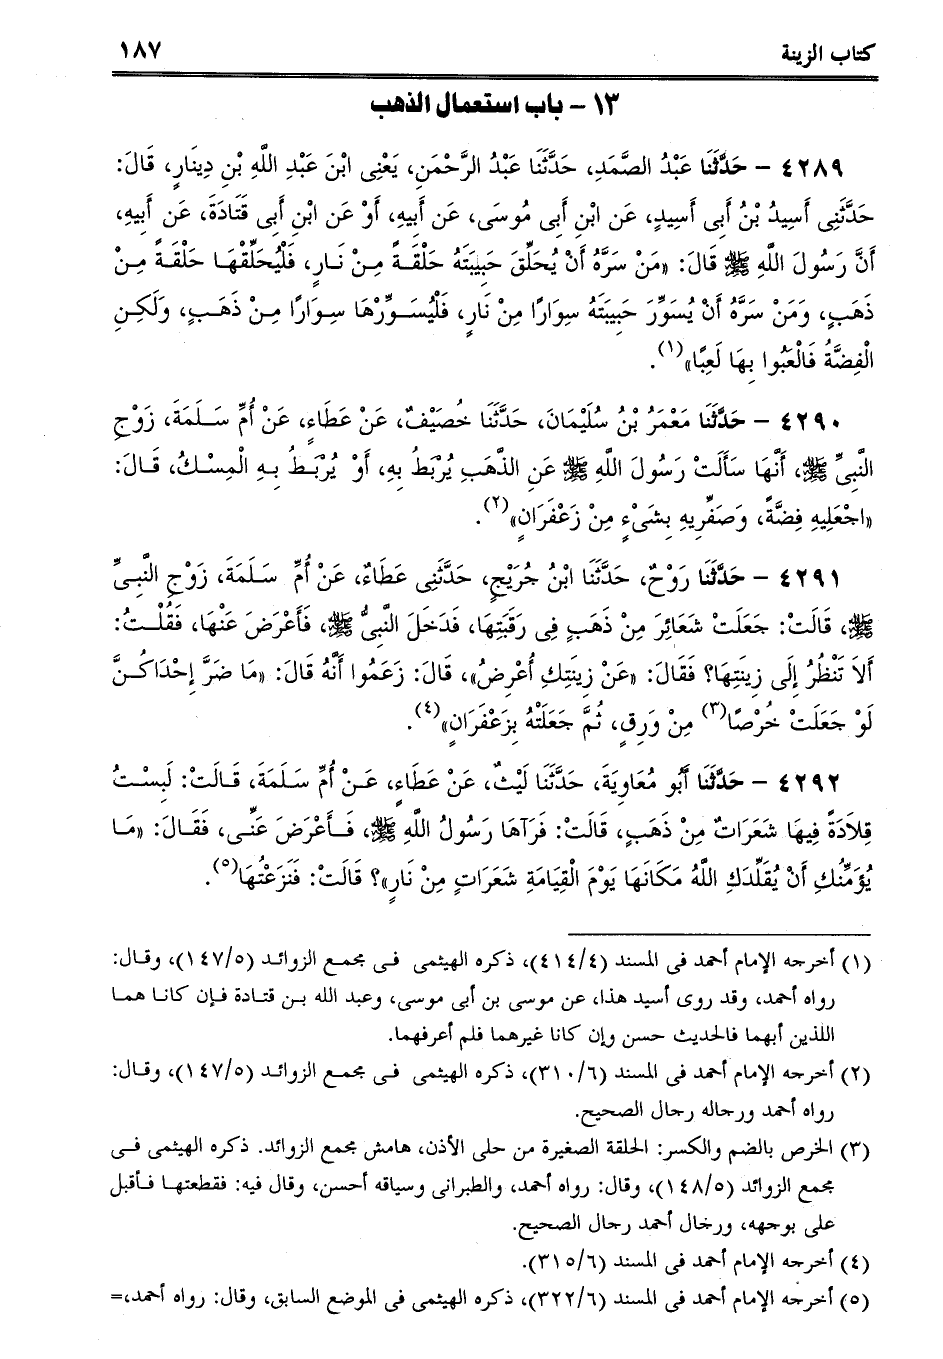 كتاب الزينة ١٨٧
١٣ – باب استعمال الذهب
٤٢٨٩ – حَدَّثَنَا عَبْدُ الصَّمَدِ، حَدَّثَنَا عَبْدُ الرَّحْمَنِ، يَعْنِى ابْنَ عَبْدِ اللَّهِ بْنِ دِينَارٍ، قَالَ:
حَدَّثَنِى أَسِيدُ بْنُ أَبِى أَسِيدٍ، عَنِ ابْنِ أَبِى مُوسَى، عَنْ أَبِيهِ، أَوْ عَنِ ابْنِ أَبِى قَتَادَةَ، عَن أَبِيهِ،
أَنَّ رَسُولَ اللَّهِ ﷺ قَالَ: «مَنْ سَرَّهُ أَنْ يُحَلِّقَ حَبِيبَتَهُ حَلْقَةً مِنْ نَارٍ، فَلْيُحَلِّقْهَا حَلْقَةً مِنْ
ذَهَبٍ، وَمَنْ سَرَّهُ أَنْ يُسَوِّرَ حَبِيبَتَهُ سِوَارًا مِنْ نَارٍ، فَلْيُسَوِّرْهَا سِوَارًا مِنْ ذَهَبٍ، وَلَكِنِ
الْفِضَّةُ فَالْعَبُوا بِهَا لَعِبًا»(١).
٤٢٩٠ – حَدَّثَنَا مَعْمَرُ بْنُ سُلَيْمَانَ، حَدَّثَنَا خُصَيْفٌ، عَنْ عَطَاءٍ، عَنْ أُمِّ سَلَمَةَ، زَوْجِ
النَّبِىِّ ﷺ، أَنَّهَا سَأَلَتْ رَسُولَ اللَّهِ ﷺ عَنِ الذَّهَبِ يُرْبَطُ بِهِ، أَوْ يُرْبَطُ بِهِ الْمِسْكُ، قَالَ:
«اجْعَلِيهِ فِضَّةً، وَصَفِّرِيهِ بِشَىْءٍ مِنْ زَعْفَرَانٍ»(٢).
٤٢٩١ – حَدَّثَنَا رَوْحٌ، حَدَّثَنَا ابْنُ جُرَيْجٍ، حَدَّثَنِى عَطَاءٌ، عَنْ أُمِّ سَلَمَةَ، زَوْجِ النَّبِىِّ
ﷺ، قَالَتْ: جَعَلَتْ شَعَائِرَ مِنْ ذَهَبٍ فِى رَقَبَتِهَا، فَدَخَلَ النَّبِىُّ ﷺ، فَأَعْرَضَ عَنْهَا، فَقُلْتُ:
أَلاَ تَنْظُرُ إِلَى زِينَتِهَا؟ فَقَالَ: «عَنْ زِينَتِكِ أُعْرِضُ»، قَالَ: زَعَمُوا أَنَّهُ قَالَ: «مَا ضَرَّ إِحْدَاكُنَّ
لَوْ جَعَلَتْ خُرْصًا(٣) مِنْ وَرِقٍ، ثُمَّ جَعَلَتْهُ بِزَعْفَرَانٍ»(٤).
٤٢٩٢ – حَدَّثَنَا أَبُو مُعَاوِيَةَ، حَدَّثَنَا لَيْثٌ، عَنْ عَطَاءٍ، عَنْ أُمِّ سَلَمَةَ، قَالَتْ: لَبِسْتُ
قِلاَدَةً فِيهَا شَعَرَاتٌ مِنْ ذَهَبٍ، قَالَتْ: فَرَآهَا رَسُولُ اللَّهِ ﷺ، فَأَعْرَضَ عَنِّى، فَقَالَ: «مَا
يُؤَمِّنُكِ أَنْ يُقَلِّدَكِ اللَّهُ مَكَانَهَا يَوْمَ الْقِيَامَةِ شَعَرَاتٍ مِنْ نَارٍ»؟ قَالَتْ: فَنَزَعْتُهَا(٥).
(١) أخرجه الإمام أحمد فى المسند (٤١٤/٤)، ذكره الهيثمى فى مجمع الزوائد (١٤٧/٥)، وقال:
رواه أحمد، وقد روى أسيد هذا، عن موسى بن أبى موسى، وعبد الله بن قتادة فإن كانا هما
اللذين أبهما فالحديث حسن وإن كانا غيرهما فلم أعرفهما.
(٢) أخرجه الإمام أحمد فى المسند (٣١٠/٦)، ذكره الهيثمى فى مجمع الزوائد (١٤٧/٥)، وقال:
رواه أحمد ورجاله رجال الصحيح.
(٣) الخرص بالضم والكسر: الحلقة الصغيرة من حلى الأذن، هامش مجمع الزوائد. ذكره الهيثمى فى
مجمع الزوائد (١٤٨/٥)، وقال: رواه أحمد، والطبرانى وسياقه أحسن، وقال فيه: فقطعتها فأقبل
على بوجهه، ورجال أحمد رجال الصحيح.
(٤) أخرجه الإمام أحمد فى المسند (٣١٥/٦).
(٥) أخرجه الإمام أحمد فى المسند (٣٢٢/٦)، ذكره الهيثمى فى الموضع السابق، وقال: رواه أحمد،=